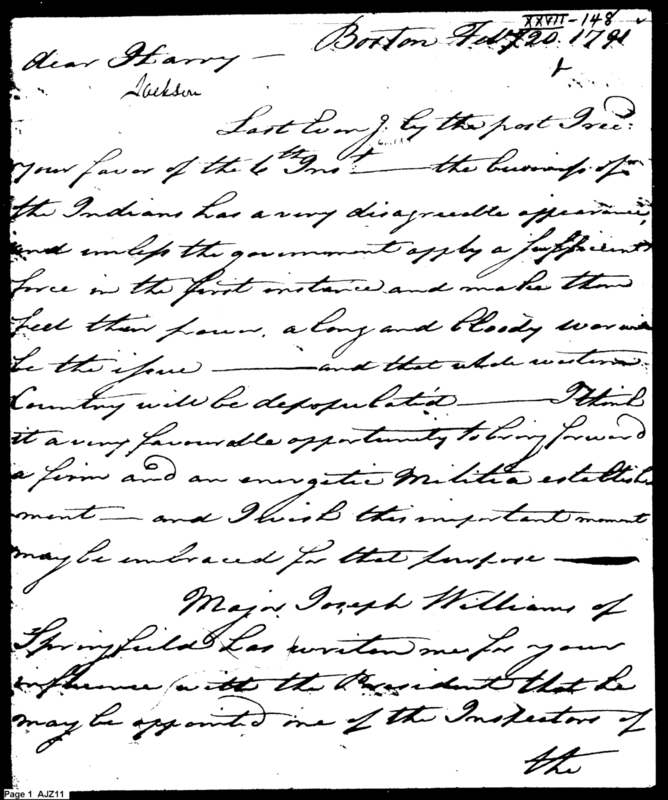 XXVII-148
Boston Feby 20. 1791
dear Harry —
Jackson
Last Eveng. by the post I recd.
your favor of the 6th Inst — the business of
the Indians has a very disagreeable appearance,
and unless the government apply a sufficient
force in the first instance and make them
feel their power, a long and bloody war will
be the issue — and that whole western
Country will be depopulated — I think
it a very favourable opportunity to bring forward
a firm and an energetic Militia establish
ment — and I wish this important moment
may be embraced for that purpose —
Major Joseph Williams of
Springfield has written me for your
influence with the President that he
may be appointd one of the Inspectors of
the
Page 1 AJZ11